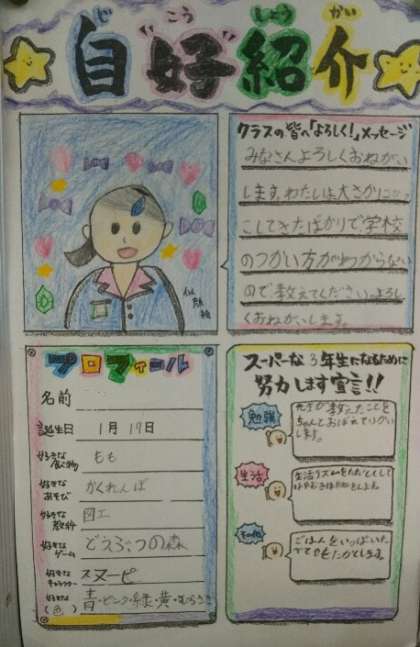 じ こう しょう かい
自好紹介
クラスの皆へ「よろしく!」メッセージ
みなさんよろしくおねがい
します。わたしは大さかに
こしてきたばかりで、学校
のつかい方がわからない
ので教えてください。よろし
くおねがいします。
似顔絵
プロフィール
名前
誕生日 1月19日
好きな食べ物 もも
好きなあそび かくれんぼ
好きな教科 図工
好きなゲーム どうぶつの森
好きなキャラクター スヌーピー
好きな(色) 青・ピンク・緑・黄・むらさき
スーパーな3年生になるために
努力します宣言!!
勉強
先生が教えたことを
ちゃんとおぼえて
します。
生活
生活リズムをただしくして
その他
ごはんをいっぱい